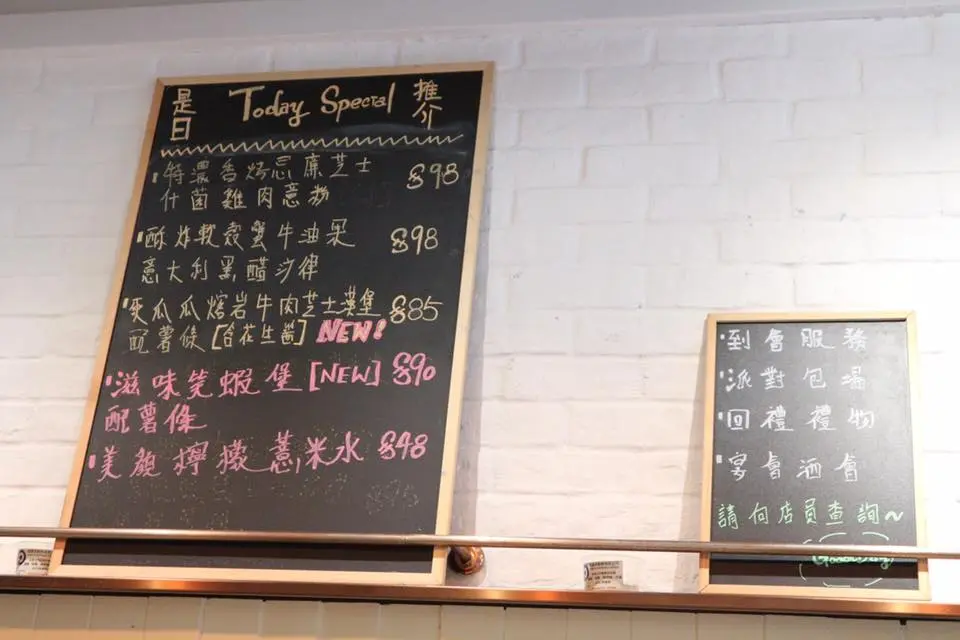 是日 Today Special 推介
特濃香烤忌廉芝士 $98
什菌雞肉意粉
酥炸軟殼蟹牛油果 $98
意大利黑醋沙律
爽瓜瓜熔岩牛肉芝士漢堡 $85
配薯條 [含花生醬] NEW!
滋味笑蝦堡 [NEW] $90
配薯條
美顏檸檬薏米水 $48
到會服務
派對包場
回禮禮物
宴會酒會
請向店員查詢~